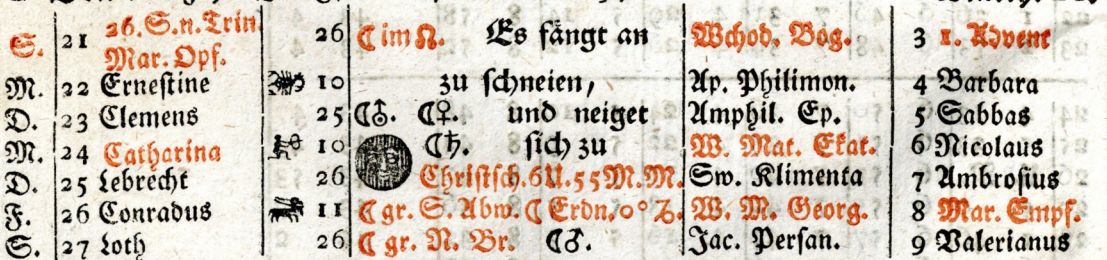 S. 21 26. S. n. Trin. 26 ☾ im ☊. Es fängt an Wchod. Bog. 3 1. Advent
Mar. Opf.
M. 22 Ernestine 10 zu schneien, Ap. Philimon. 4 Barbara
D. 23 Clemens 25 ☾♁. ☾♀. und neiget Amphil. Ep. 5 Sabbas
M. 24 Catharina 10 ☾♄. sich zu W. Mat. Ekat. 6 Nicolaus
D. 25 Lebrecht 26 Christsch. 6 U. 55 M. M. Sw. Klimenta 7 Ambrosius
F. 26 Conradus 11 ☾ gr. S. Abw. ☾ Erdn. 0° ♑. W. M. Georg. 8 Mar. Empf.
S. 27 Loth 26 ☾ gr. N. Br. ☾♂. Jac. Persan. 9 Valerianus